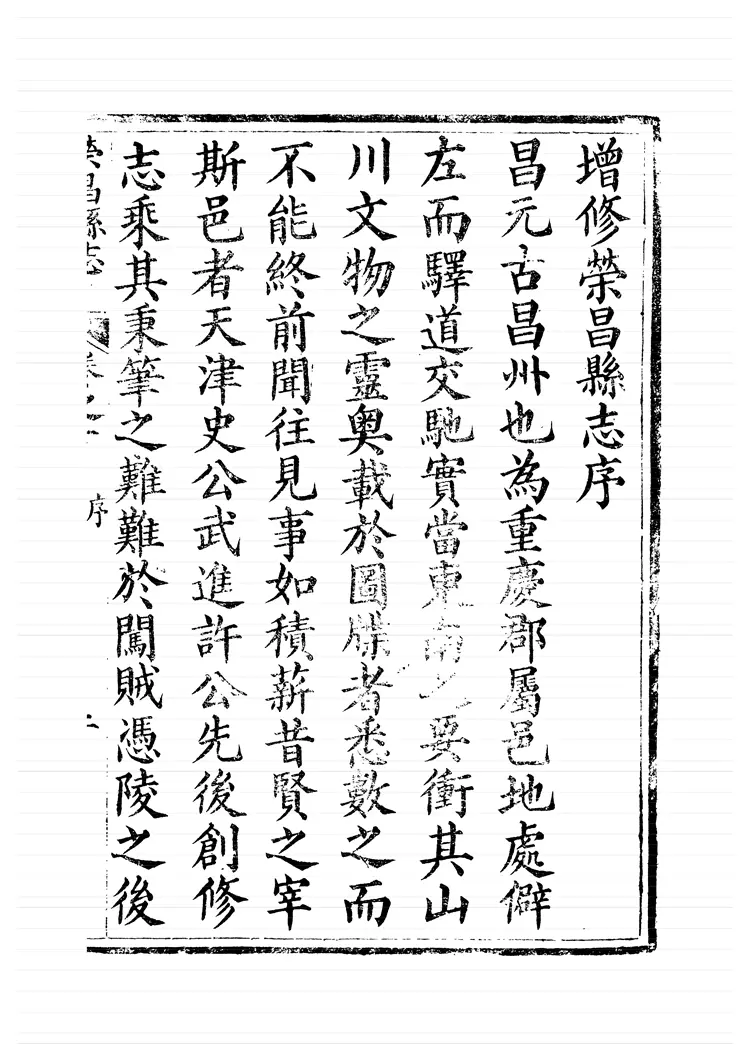 增修榮昌縣志序
昌元古昌州也為重慶郡屬邑地處僻
左而驛道交馳實當東南之要衝其山
川文物之靈奧載於圖牒者悉數之而
不能終前聞往見事如積薪昔賢之宰
斯邑者天津史公武進許公先後創修
志乘其秉筆之難難於闖賊憑陵之後
榮昌縣志 卷之 序